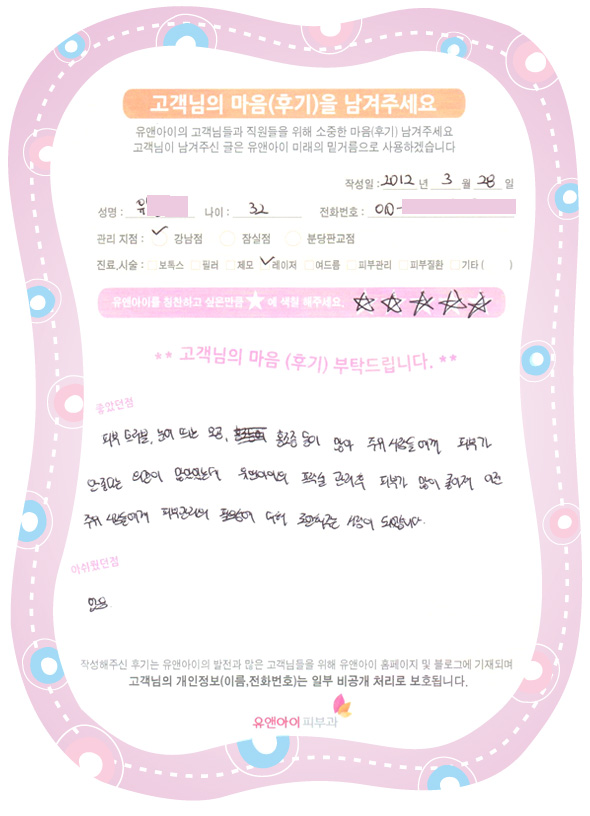 고객님의 마음(후기)을 남겨주세요
유앤아이의 고객님들과 직원들을 위해 소중한 마음(후기) 남겨주세요
고객님이 남겨주신 글은 유앤아이 미래의 밑거름으로 사용하겠습니다
작성일 : 2012 년 3 월 28 일
성명 : 나이 : 32 전화번호 : 010-
관리 지점 : 강남점 잠실점 분당판교점
진료,시술 : 보톡스 필러 제모 레이저 여드름 피부관리 피부질환 기타 ( )
유앤아이를 칭찬하고 싶은만큼 ★ 에 색칠 해주세요. ☆☆☆☆☆
** 고객님의 마음 (후기) 부탁드립니다. **
좋았던점
피부 트러블, 눈에 띄는 모공, 홍조증 등이 많아 주위 사람들에게 피부가
안좋다는 의견이 많았었는데 유앤아이의 프락셀 관리후 피부가 많이 좋아져 이젠
주위 사람들에게 피부관리의 필요성에 대해 조언해주는 사람이 되었습니다.
아쉬웠던점
없음
작성해주신 후기는 유앤아이의 발전과 많은 고객님들을 위해 유앤아이 홈페이지 및 블로그에 기재되며
고객님의 개인정보(이름,전화번호)는 일부 비공개 처리로 보호됩니다.
유앤아이피부과